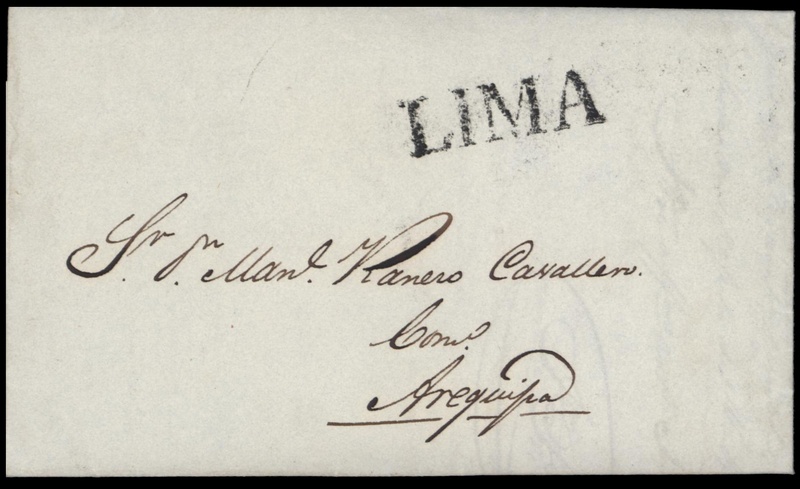 LIMA
Sr. Dn. Manl. Ranero Cavallero.
Como.
Arequipa